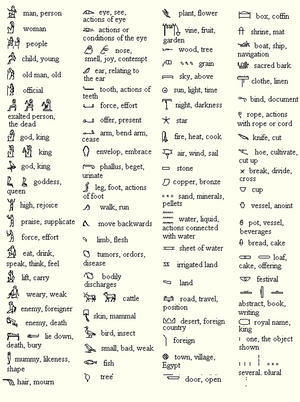 man, person
woman
people
child, young
old man, old
official
exalted person,
the dead
god, king
king
god, king
goddess,
queen
high, rejoice
praise, supplicate
force, effort
eat, drink,
speak, think, feel
lift, carry
weary, weak
enemy, foreigner
enemy, death
lie down,
death, bury
mummy, likeness,
shape
hair, mourn
eye, see,
actions of eye
actions or
conditions of the eye
nose,
smell, joy, contempt
ear, relating to
the ear
tooth, actions of
teeth
force, effort
offer, present
arm, bend arm,
cease
envelop, embrace
phallus, beget,
urinate
leg, foot, actions
of foot
walk, run
move backwards
limb, flesh
tumors, odors,
disease
bodily
discharges
cattle
skin, mammal
bird, insect
small, bad, weak
fish
tree
plant, flower
vine, fruit,
garden
wood, tree
grain
sky, above
sun, light, time
night, darkness
star
fire, heat, cook
air, wind, sail
stone
copper, bronze
sand, minerals,
pellets
water, liquid,
actions connected
with water
sheet of water
irrigated land
land
road, travel,
position
desert, foreign
country
foreign
town, village,
Egypt
door, open
box, coffin
shrine, mat
boat, ship,
navigation
sacred bark
clothe, linen
bind, document
rope, actions
with rope or cord
knife, cut
hoe, cultivate,
cut up
break, divide,
cross
cup
vessel, anoint
pot, vessel,
beverages
bread, cake
loaf,
cake, offering
festival
abstract, book,
writing
royal name,
king
one, the object
shown
several, plural